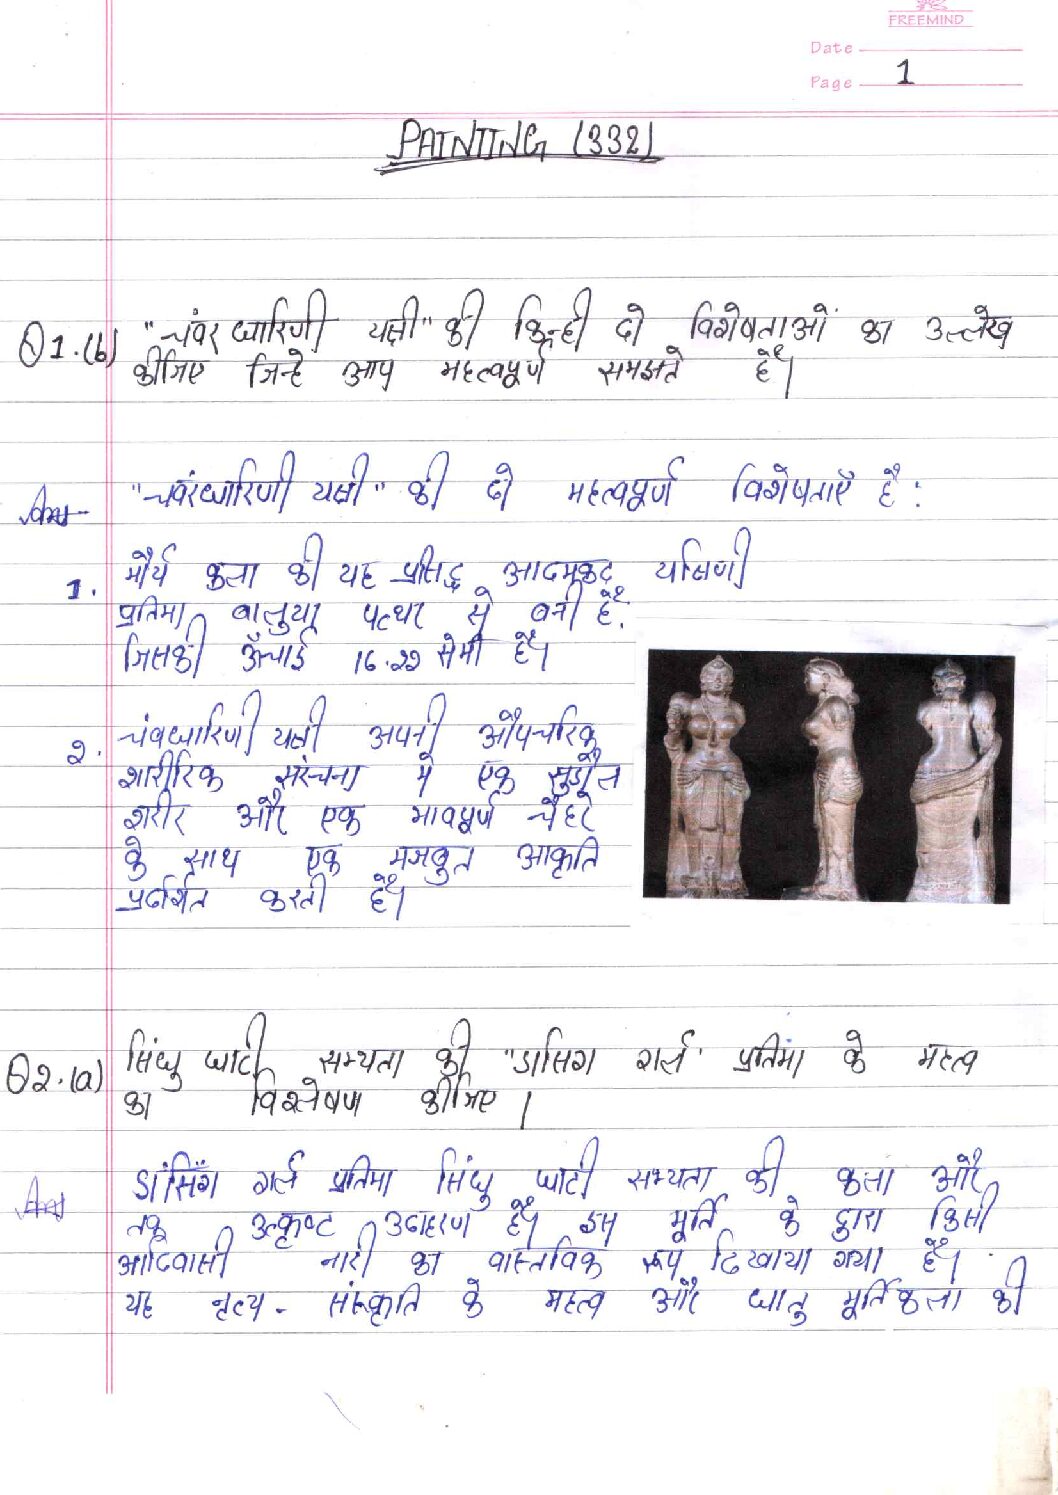 FREEMIND
Date
Page 1
PAINTING (332)
Q1.(b) "चंवर धारिणी यक्षी" की किन्ही दो विशेषताओं का उल्लेख
कीजिए जिन्हे आप महत्वपूर्ण समझते है।
Ans- "चवंरधारिणी यक्षी" की दो महत्वपूर्ण विशेषताएँ है :
1. मौर्य कला की यह प्रसिद्ध आदमकद यक्षिणी
प्रतिमा बालुया पत्थर से बनी है।
जिसकी ऊँचाई 16.22 सेमी है।
२. चंवधारिणी यक्षी अपनी औपचरिक
शारीरिक संरचना मे एक सुडौल
शरीर और एक भावपूर्ण चेहरे
के साथ एक मजबुत आकृति
प्रदर्शित करती है।
Q2.(a) सिंधु घाटी सभ्यता की "डासिग गर्ल" प्रतिमा के महत्व
का विश्लेषण कीजिए ।
Ans डांसिंग गर्ल प्रतिमा सिंधु घाटी सभ्यता की कला और
तक उत्कृष्ट उदाहरण है। इस मूर्ति के द्वारा किसी
आदिवासी नारी का वास्तविक रूप दिखाया गया है।
यह नृत्य - संस्कृति के महत्व और धातु मूर्तिकला की